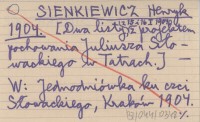 SIENKIEWICZ Henryk
1904. [Dwa listy z projektem
pochowania Juljusza Sło-
wackiego w Tatrach.] —
W: Jednodniówka ku czci
Słowackiego, Kraków 1904.